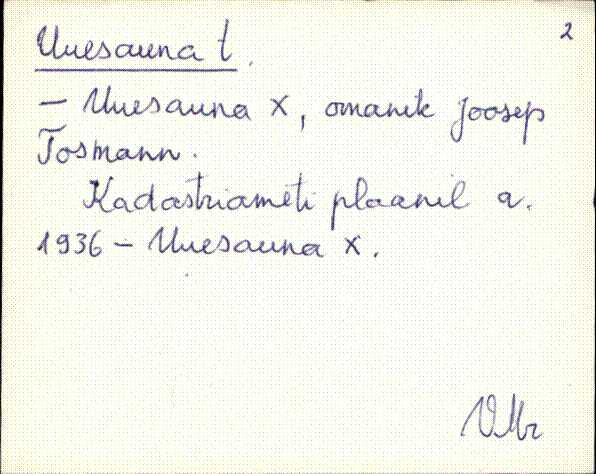 2
Uuesauna t.
– Uuesauna x, omanik Joosep
Tosmann.
Kadastriameti plaanil a.
1936 – Uuesauna x.
VMr